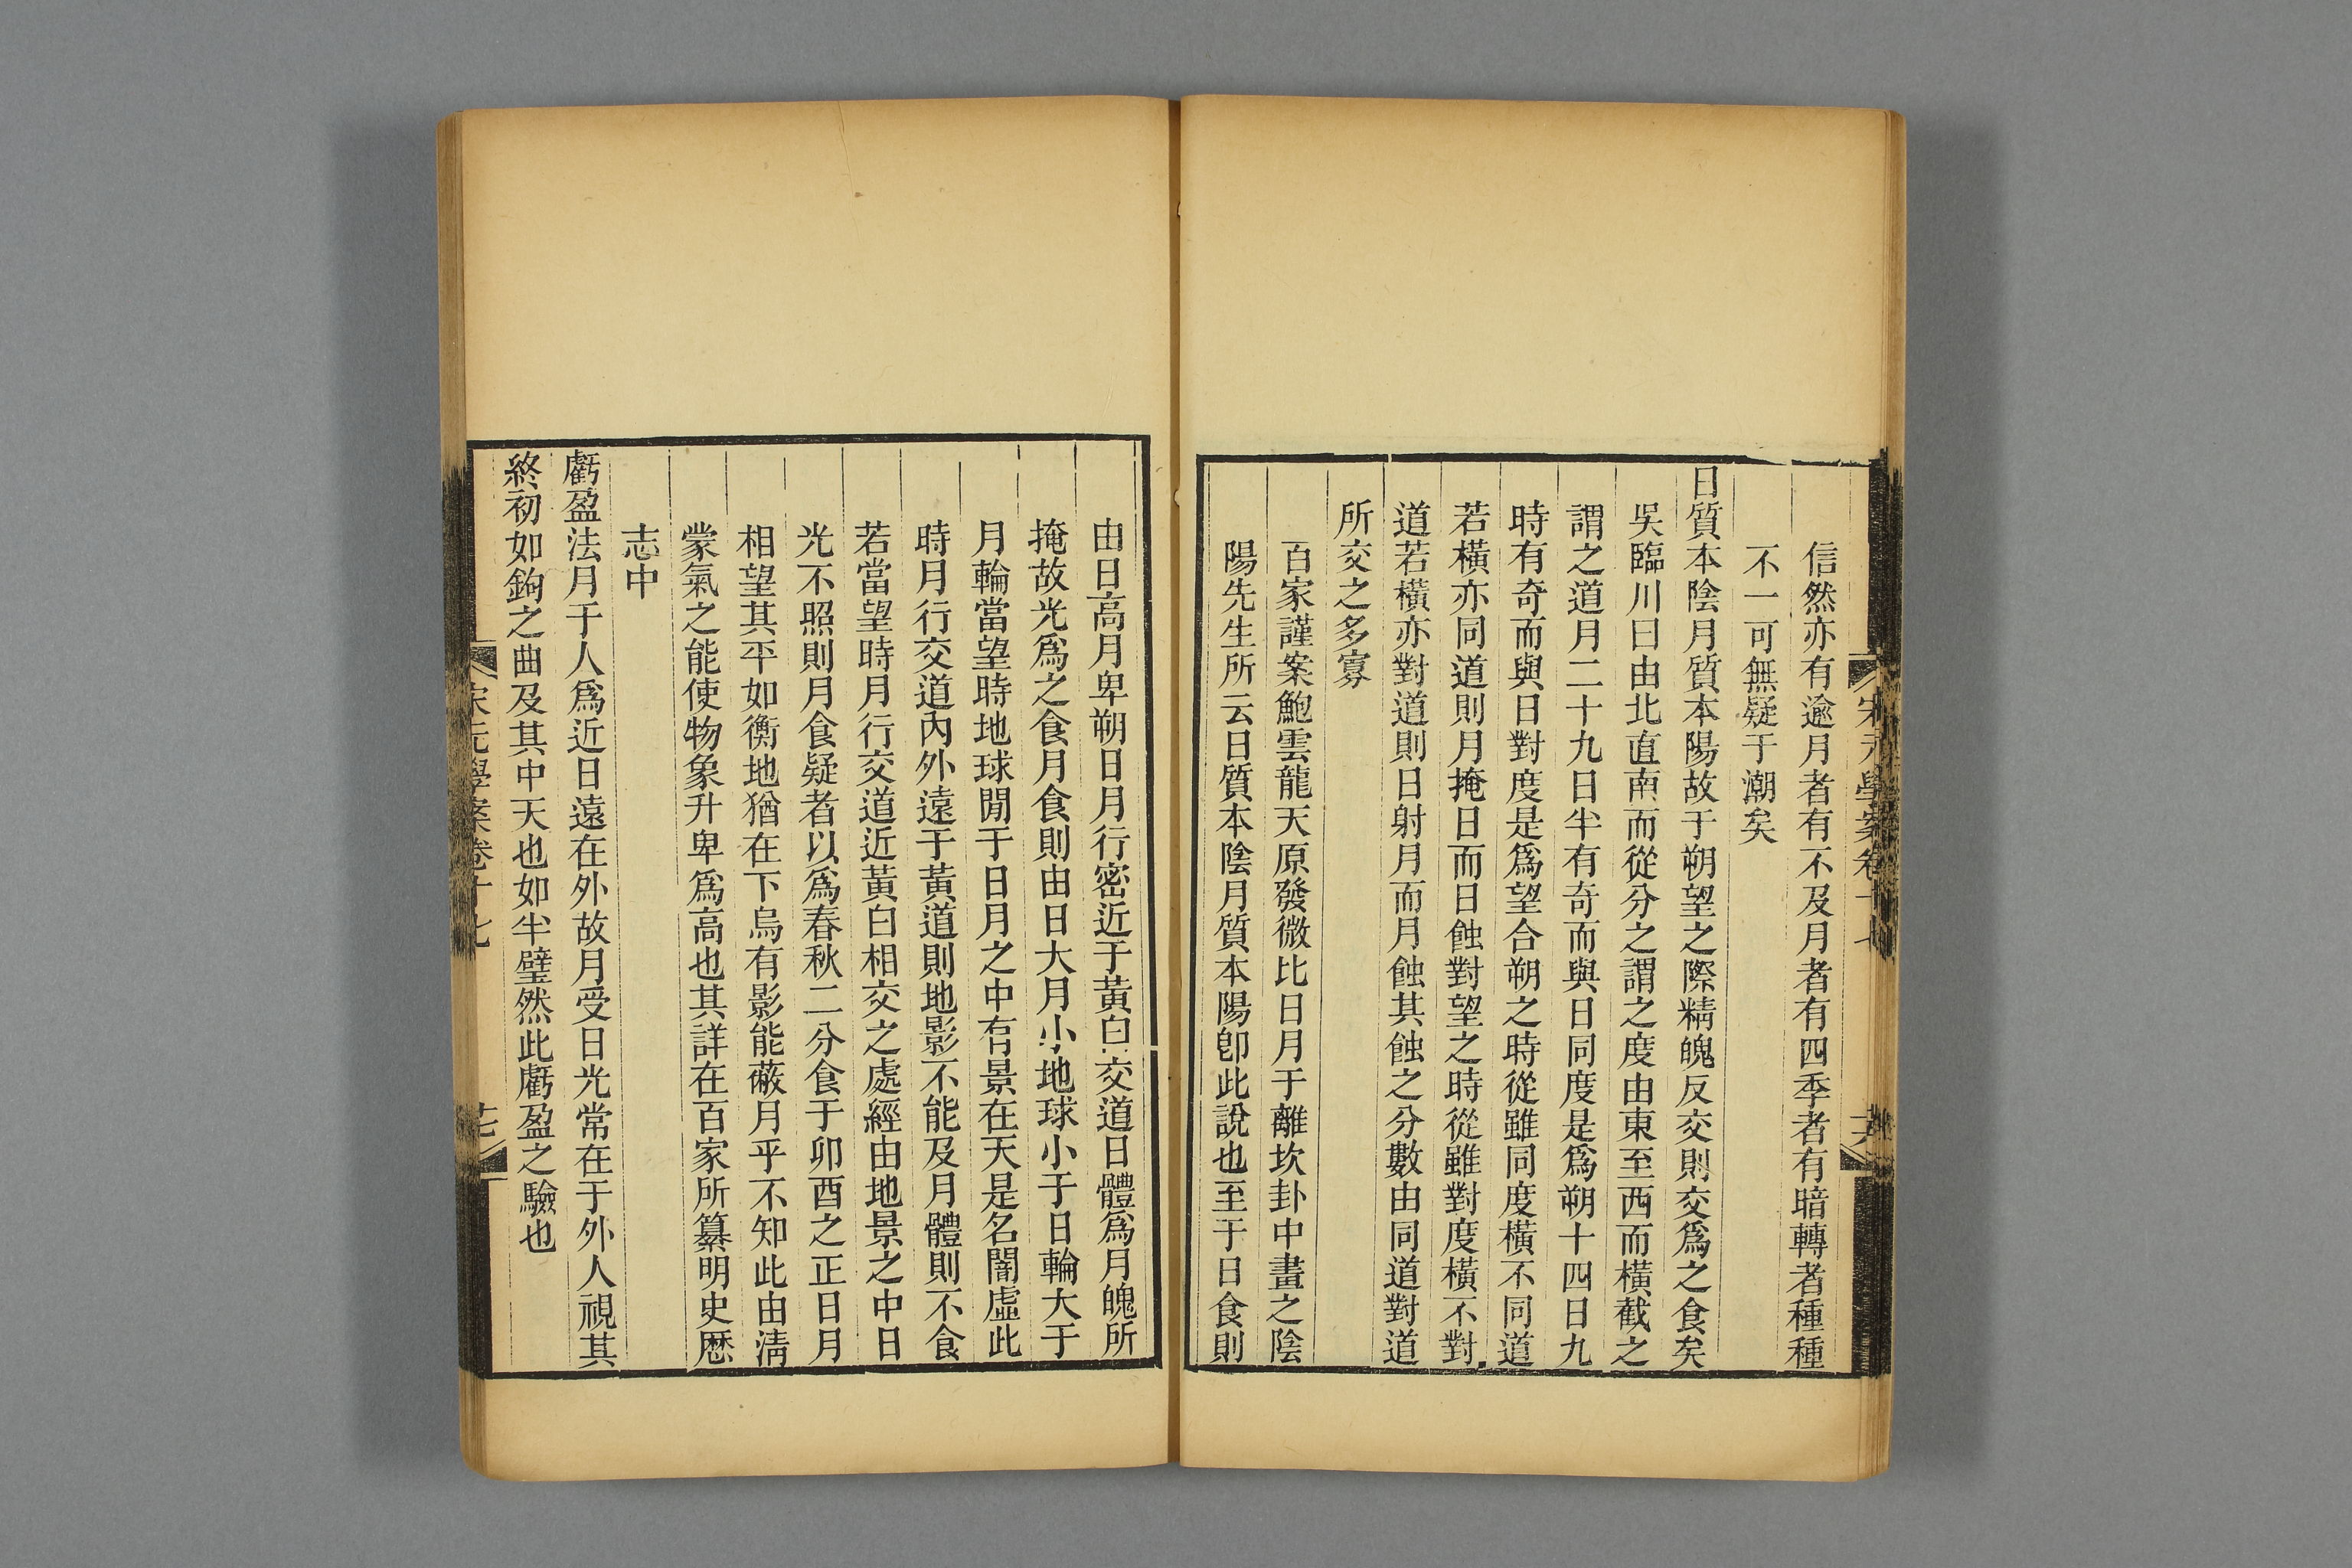 信然亦有逾月者有不及月者有四季者有暗轉者種種
不一可無疑于潮矣
日質本陰月質本陽故于朔望之際精魄反交則交爲之食矣
吳臨川曰由北直南而從分之謂之度由東至西而橫截之
謂之道月二十九日半有奇而與日同度是爲朔十四日九
時有奇而與日對度是爲望合朔之時從雖同度橫不同道
若橫亦同道則月掩日而日蝕對望之時從雖對度橫不對
道若橫亦對道則日射月而月蝕其蝕之分數由同道對道
所交之多寡
百家謹案鮑雲龍天原發微比日月于離坎卦中畫之陰
陽先生所云日質本陰月質本陽卽此說也至于日食則
宋元學案卷十七
由日高月卑朔日月行密近于黃白交道日體爲月魄所
掩故光爲之食月食則由日大月小地球小于日輪大于
月輪當望時地球閒于日月之中有景在天是名闇虛此
時月行交道內外遠于黃道則地影不能及月體則不食
若當望時月行交道近黃白相交之處經由地景之中日
光不照則月食疑者以爲春秋二分食于卯酉之正日月
相望其平如衡地猶在下烏有影能蔽月乎不知此由淸
蒙氣之能使物象升卑爲高也其詳在百家所纂明史歷
志中
虧盈法月于人爲近日遠在外故月受日光常在于外人視其
終初如鉤之曲及其中天也如半璧然此虧盈之驗也
宋元學案卷十七